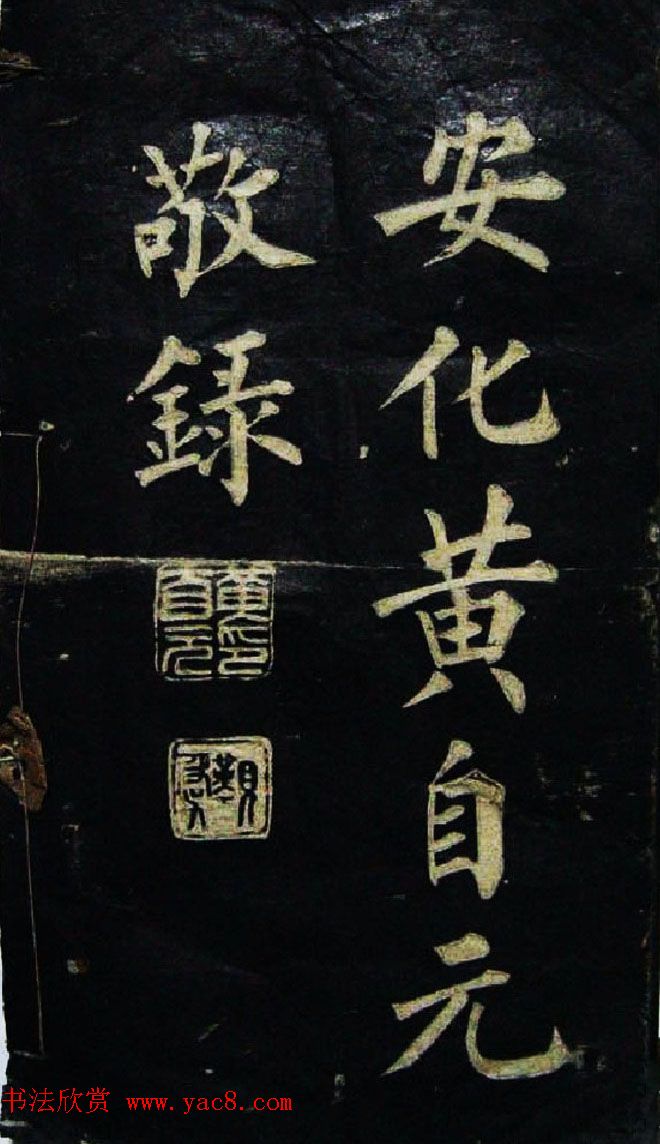 安化黄自元
敬録
黄自元印
书法欣赏 www.yac8.com